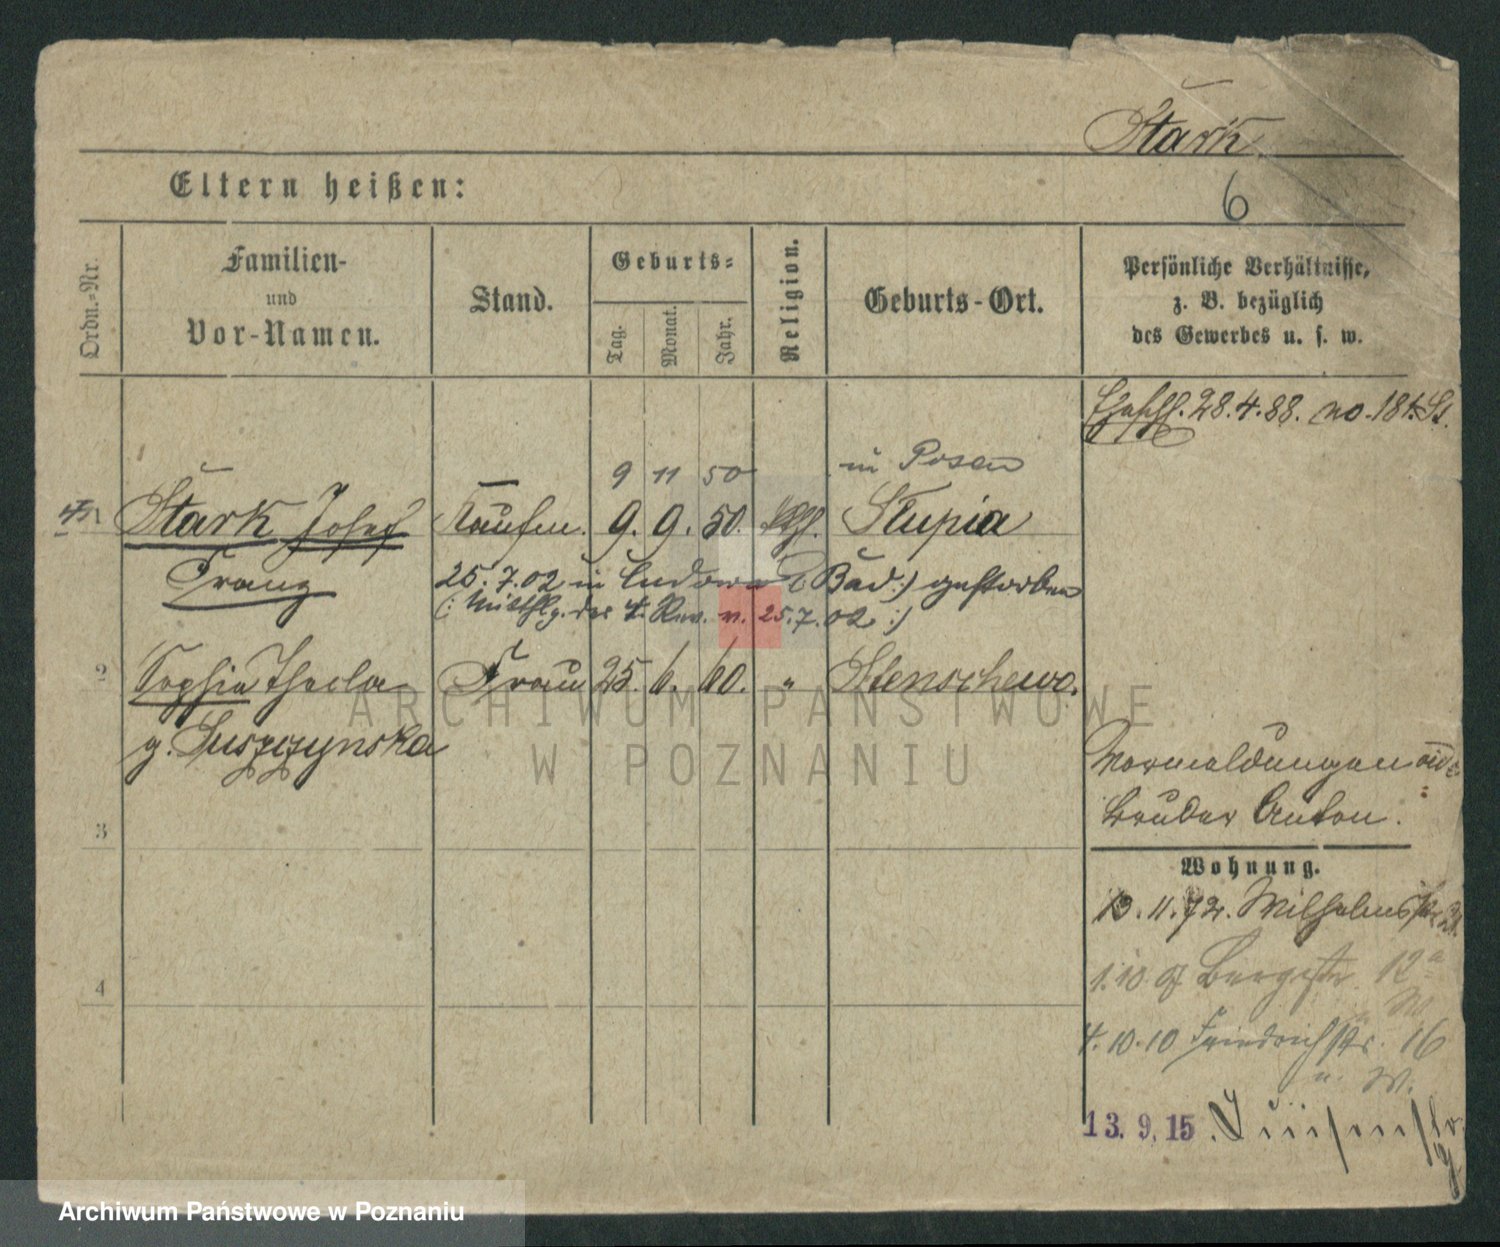 Stark
Eltern heißen:
6
Ordn.-Nr.
Familien-
und
Vor-Namen.
Stand.
Geburts-
Tag.
Monat.
Jahr.
Religion.
Geburts-Ort.
Persönliche Verhältnisse,
z. B. bezüglich
des Gewerbes u. s. w.
28.4.88. no. 184. St.
9 11 50 in Posen
1 Stark Josef Kaufm. 9. 9. 50. kth. Slupia
Franz
25.7.02 in (Bad:) gestorben
(: Mitthlg. des 4. Rev. v. 25.7.02 :)
2 Sophia Thecla Frau 25. 6. 60. " Stenschewo.
g. Suszczynska
Vormeldungen
Bruder Anton.
3
Wohnung.
13.11.72. Wilhelmstr.
1.10.07 Bergstr. 12a
W
4
4.10.10 Friedrichstr. 16
u. W.
13. 9. 15.
ARCHIWUM PAŃSTWOWE
W POZNANIU
Archiwum Państwowe w Poznaniu